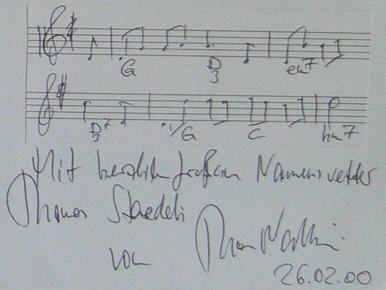 G D em7
3
D7 G C hm7
3
Mit herzlichem Gruß an Namensvetter
Thomas Staedeli
von Thom
26.02.00